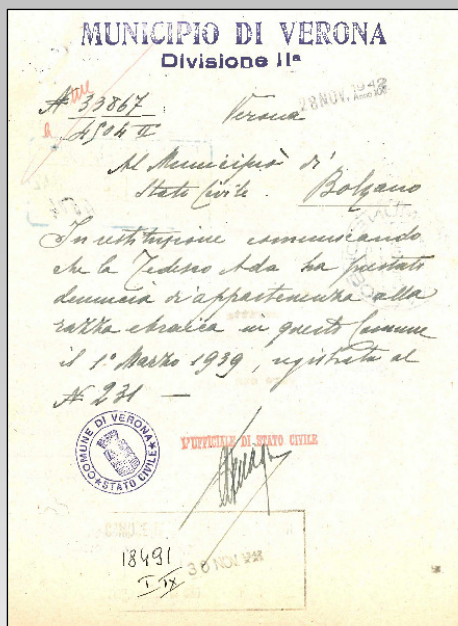 MUNICIPIO DI VERONA
Divisione IIª
N° 33867
4504 II
28 NOV. 1942
Verona
Al Municipio di
Stato Civile Bolzano
In restituzione comunicando
che la Tedesco Ada ha prestato
denuncia di appartenenza alla
razza ebraica in questo Comune
il 1° Marzo 1939, registrata al
N° 231 —
COMUNE DI VERONA
STATO CIVILE
L'UFFICIALE DI STATO CIVILE
18491
I. IX
30 NOV